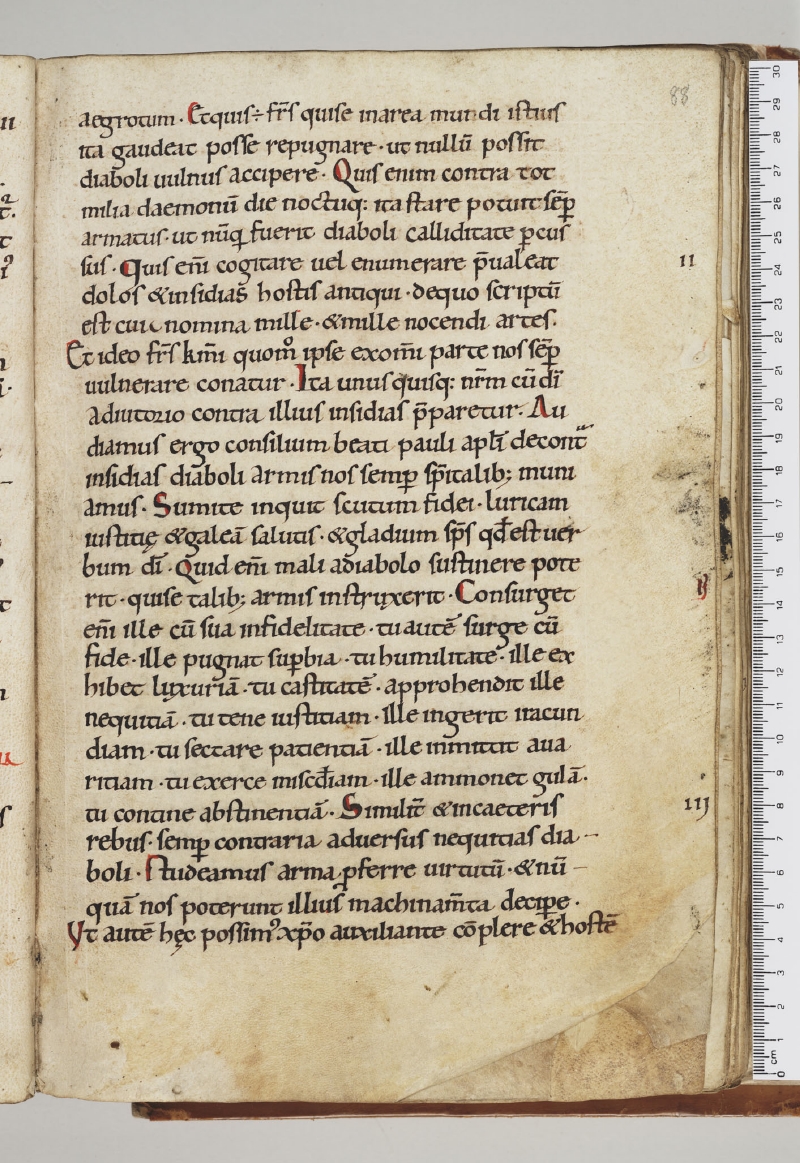 88
aegrotum · Et quis ÷ fr̄s qui se in area mundi istius
ita gaudeat posse repugnare · ut nullū possit
diaboli uulnus accipere · Quis enim contra tot
milia daemoniū die noctuq; ita stare potuit sēp
armatus · ut nūq̄ fuerit diaboli calliditate ꝑcus
sus · Quis eni̅ cogitare uel enumerare p̄ualeat
II
dolos & insidias hostis antiqui · de quo scriptū
est cui nomina mille · & mille nocendi artes.
Et ideo fr̄s km̄i quom̊ ipse ex om̄i parte nos sēp
uulnerare conatur · Ita unusquisq; nr̄m cū dī
adiutorio contra illius insidias p̄paretur · Au
diamus ergo consilium beati pauli apłi de cont̄
insidias diaboli armis nos semꝑ sp̄italib; muni
amus · Sumite inquit scutum fidei · luricam
iustitię & galeā salutis · & gladium sp̄s qd̄ est uer
bum dī · Quid eni̅ mali a diabolo sustinere pote
rit · qui se talib; armis instruxerit · Consurget
eni̅ ille cū sua infidelitate · tu autē surge cū
fide · ille pugnat suꝑbia · tu humilitate · ille ex
hibet luxuriā · tu castitatē · approhendit ille
nequitiā · tu tene iustitiam · ille ingerit iracun
diam · tu sectare patientiā · ille inmittit aua
ritiam · tu exerce miscd̄iam · ille ammonet gulā ·
tu contine abstinentiā · Similit̄ & in caeteris
III
rebus · semꝑ contraria aduersus nequitias dia
boli · studeamus arma ꝓferre uirtutū · & nū
quā nos poterunt illius machinam̄ta deciꝑe ·
Ut autē hęc possimꝰ xp̄o auxiliante cōplere & hostē